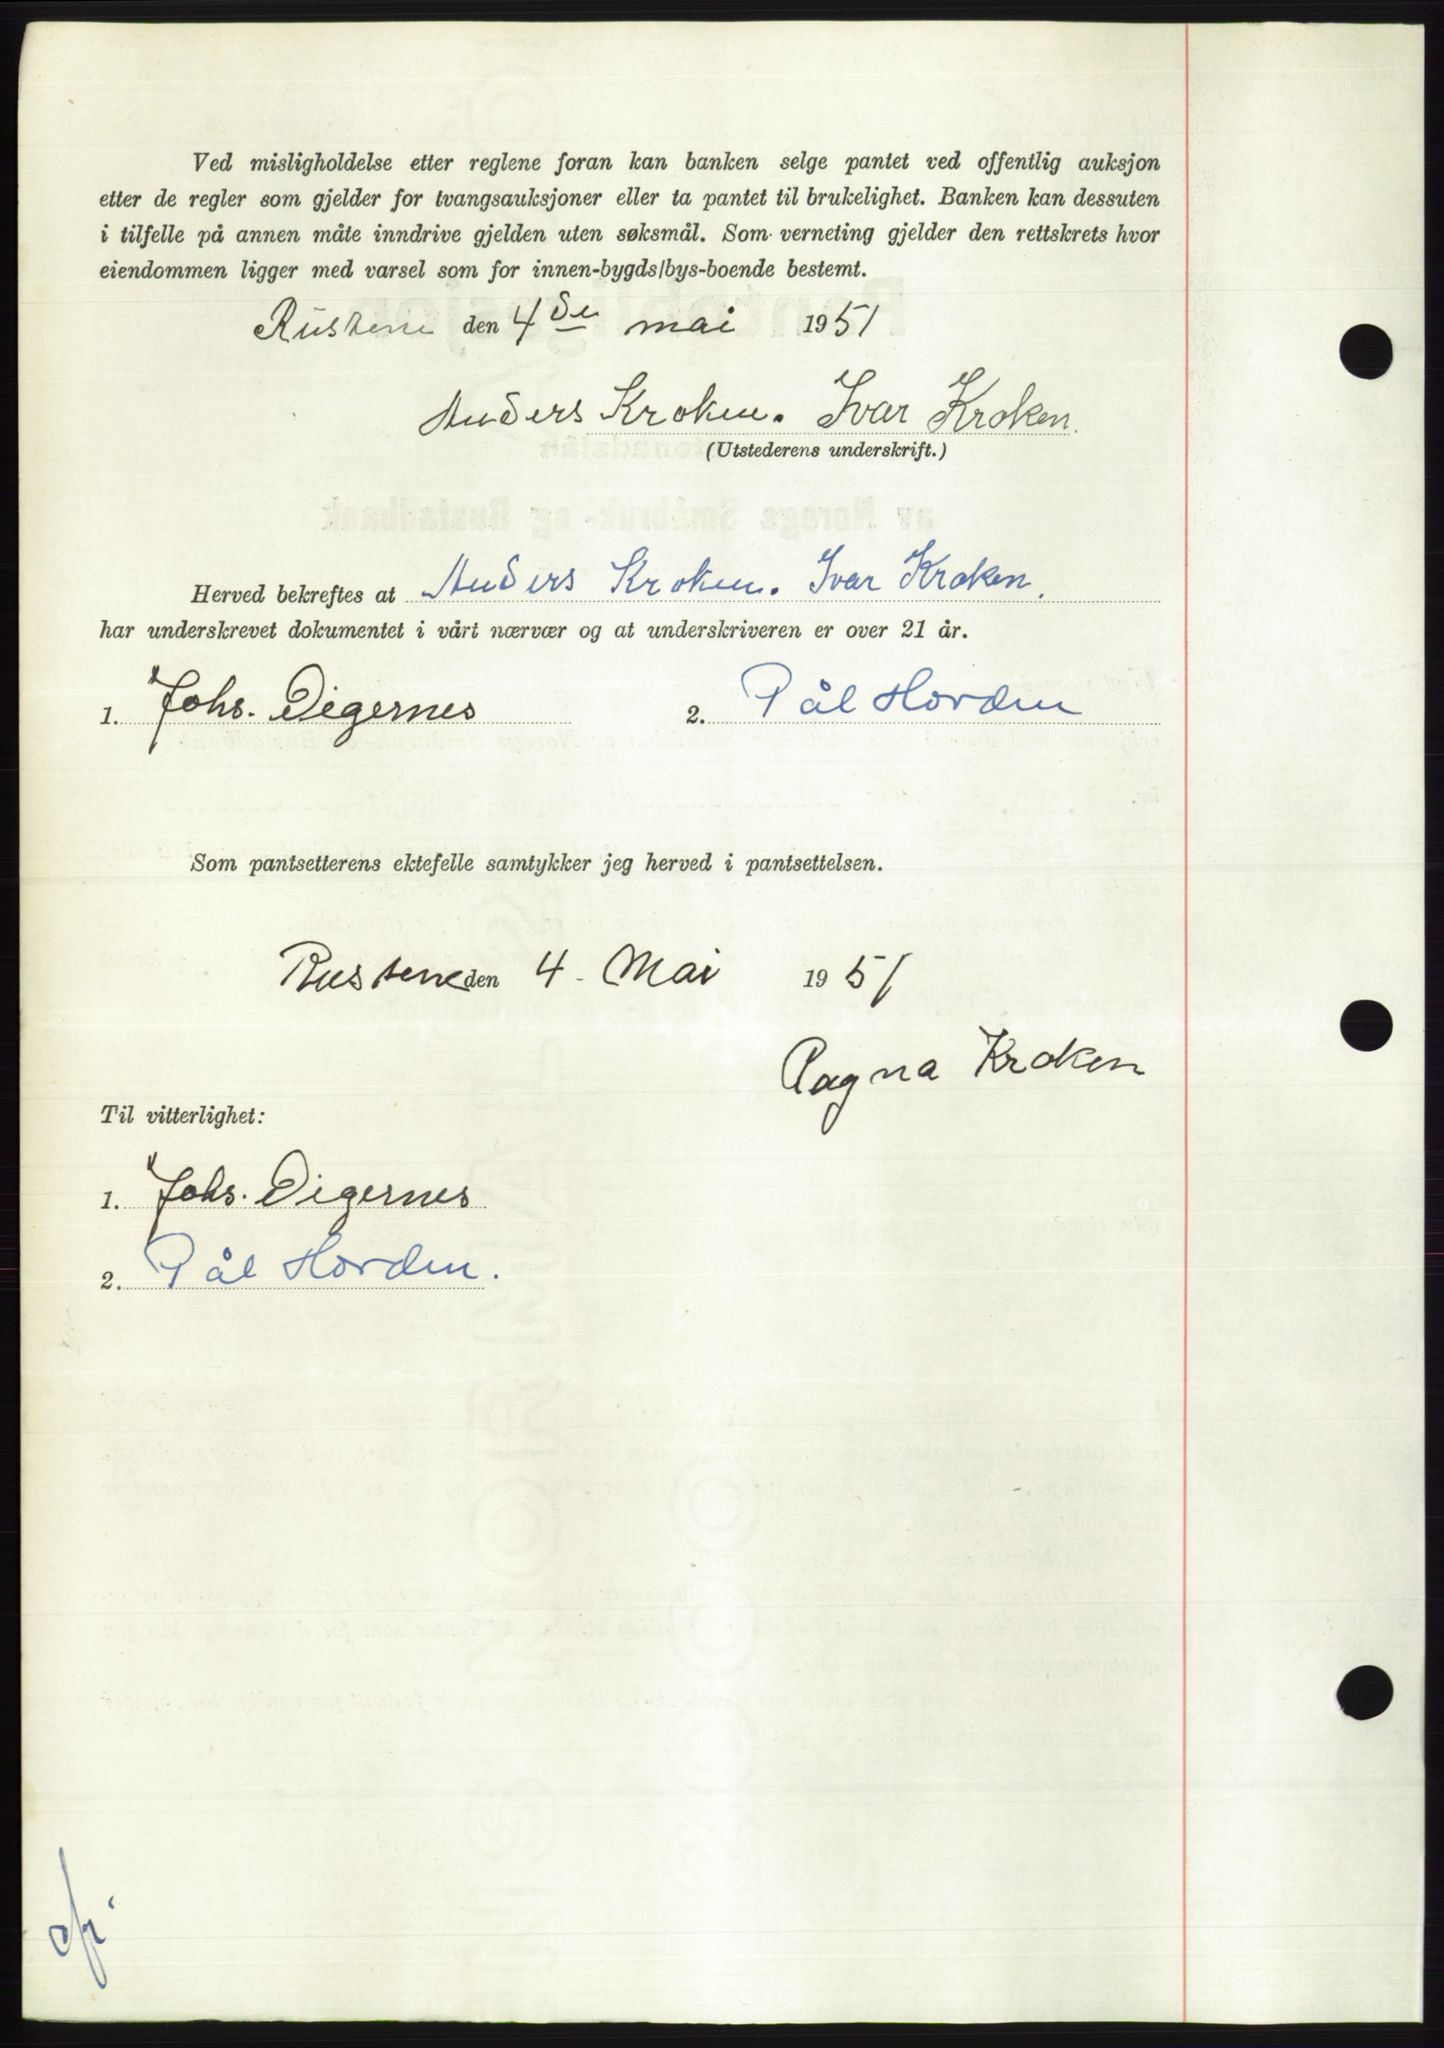 Ved misligholdelse etter reglene foran kan banken selge pantet ved offentlig auksjon
etter de regler som gjelder for tvangsauksjoner eller ta pantet til brukelighet. Banken kan dessuten
i tilfelle på annen måte inndrive gjelden uten søksmål. Som verneting gjelder den rettskrets hvor
eiendommen ligger med varsel som for innen-bygds/bys-boende bestemt.
Rustene den 4de mai 1951
Anders Kroken. Ivar Kroken.
(Utstederens underskrift.)
Herved bekreftes at Anders Kroken. Ivar Kroken.
har underskrevet dokumentet i vårt nærvær og at underskriveren er over 21 år.
1. Johs. Digernes 2. Pål Horden
Som pantsetterens ektefelle samtykker jeg herved i pantsettelsen.
Rustene den 4. Mai 1951
Ragna Kroken
Til vitterlighet:
1. Johs. Digernes
2. Pål Horden.